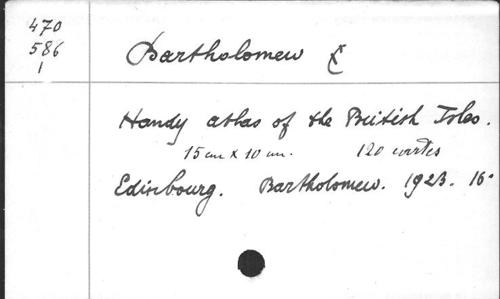 470
586
1
Bartholomew
Handy atlas of the British Isles.
15 cm x 10 cm. 120 cartes
Edinbourg. Bartholomew. 1923. 16°